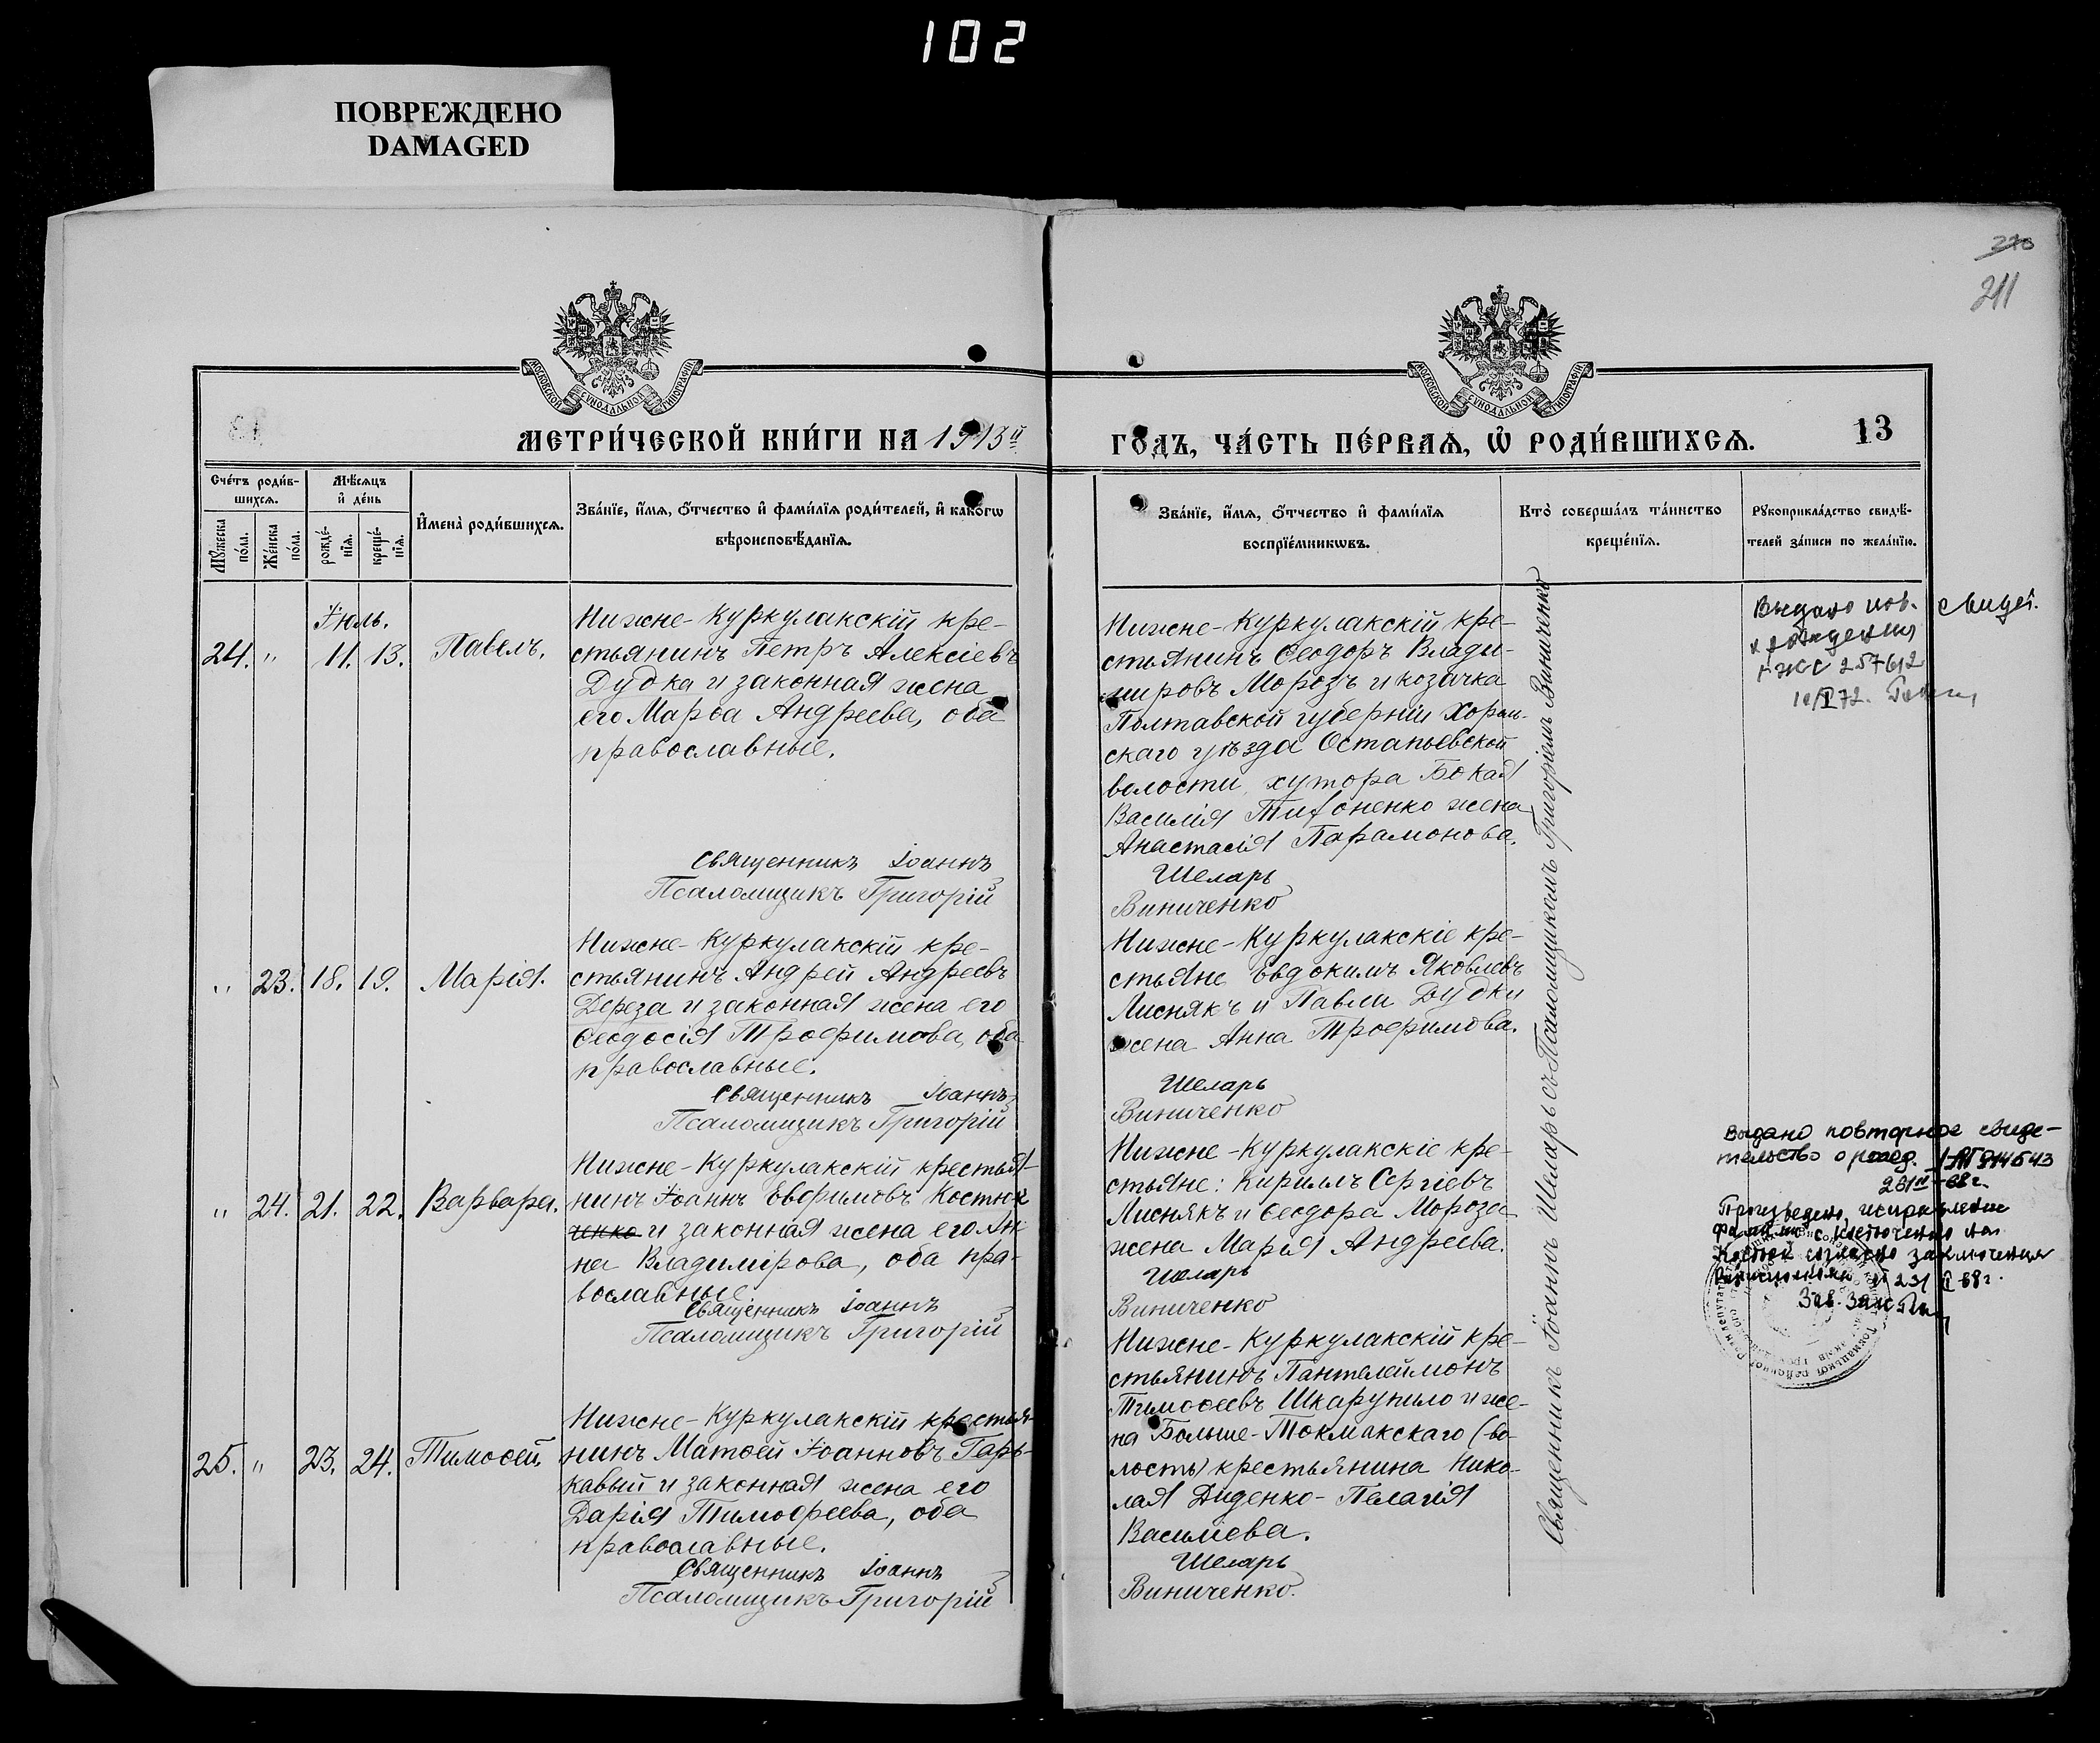 102
ПОВРЕЖДЕНО
DAMAGED
270
211
МОСКОВСКОЙ СѴНОДАЛЬНОЙ ТИПОГРАФІИ
МОСКОВСКОЙ СѴНОДАЛЬНОЙ ТИПОГРАФІИ
МЕТРИ́ЧЕСКОЙ КНИ́ГИ НА 1913й
ГО́ДЪ, ЧА́СТЬ ПЕ́РВАѦ, Ѡ҆ РОДИ́ВШИХСѦ.
13
Сче́тъ роди́в-
шихсѧ.
Мѣ́сѧцъ
и҆ де́нь
Мꙋ́жеска
по́ла.
Же́нска
по́ла.
рожде́-
нїѧ.
креще́-
нїѧ.
И҆мена̀ роди́вшихсѧ.
Зва́нїе, и҆́мѧ, ѻ҆́тчество и҆ фами́лїѧ роди́телей, и҆ како́гѡ
вѣроисповѣ́данїѧ.
Зва́нїе, и҆́мѧ, ѻ҆́тчество и҆ фами́лїѧ
воспрїе́мникѡвъ.
Кто̀ соверша́лъ та́инство
креще́нїѧ.
Рꙋкоприкла́дство свидѣ́-
телей за́писи по жела́нїю.
Іюль.
24. " 11. 13. Павелъ.
Нижне-Куркулакскій кре-
стьянинъ Петръ Алексіевъ
Дудка и законная жена
его Марѳа Андреева, оба
православные.
Священникъ Іоаннъ
Псаломщикъ Григорій
Нижне-Куркулакскій кре-
стьянинъ Ѳеодоръ Влади-
мировъ Морозъ и козачка
Полтавской губерніи Хороль-
скаго уѣзда Остапьевской
волости, хутора Бокая
Василія Тифоненко жена
Анастасія Парамонова.
Шеларь
Виниченко
Выдано пов. свидет.
о рождении
257612
10/I 72.
" 23. 18. 19. Марія.
Нижне-Куркулакскій кре-
стьянинъ Андрей Андреевъ
Дереза и законная жена его
Ѳеодосія Трофимова, оба
православные.
Священникъ Іоаннъ
Псаломщикъ Григорій
Нижне-Куркулакскіе кре-
стьяне Евдокимъ Яковлевъ
Лиснякъ и Павла Дудки
жена Анна Трофимова.
Шеларь
Виниченко
" 24. 21. 22. Варвара.
Нижне-Куркулакскій крестья-
нинъ Іоаннъ Евфимовъ Костюк
ченко и законная жена его Ан-
на Владимірова, оба пра-
вославные.
Священникъ Іоаннъ
Псаломщикъ Григорій
Нижне-Куркулакскіе кре-
стьяне: Кириллъ Сергіевъ
Лиснякъ и Ѳеодора Мороза
жена Марія Андреева.
Шеларь
Виниченко
Выдано повторное свиде-
тельство о рожд.
Произведено исправление
фамилии с Костюченко на
Костюк согласно заключения
№ 231
25. " 23. 24. Тимоѳей.
Нижне-Куркулакскій крестья-
нинъ Матѳей Іоанновъ Гарь-
кавый и законная жена его
Дарія Тимофеева, оба
православные.
Священникъ Іоаннъ
Псаломщикъ Григорій
Нижне-Куркулакскій кре-
стьянинъ Пантелеймонъ
Тимоѳеевъ Шкарупило и же-
на Больше-Токмакскаго (во-
лость) крестьянина Нико-
лая Диденко-Пелагія
Василіева.
Шеларь
Виниченко.
Священникъ Іоаннъ Шеларь съ Псаломщикомъ Григоріемъ Виниченко